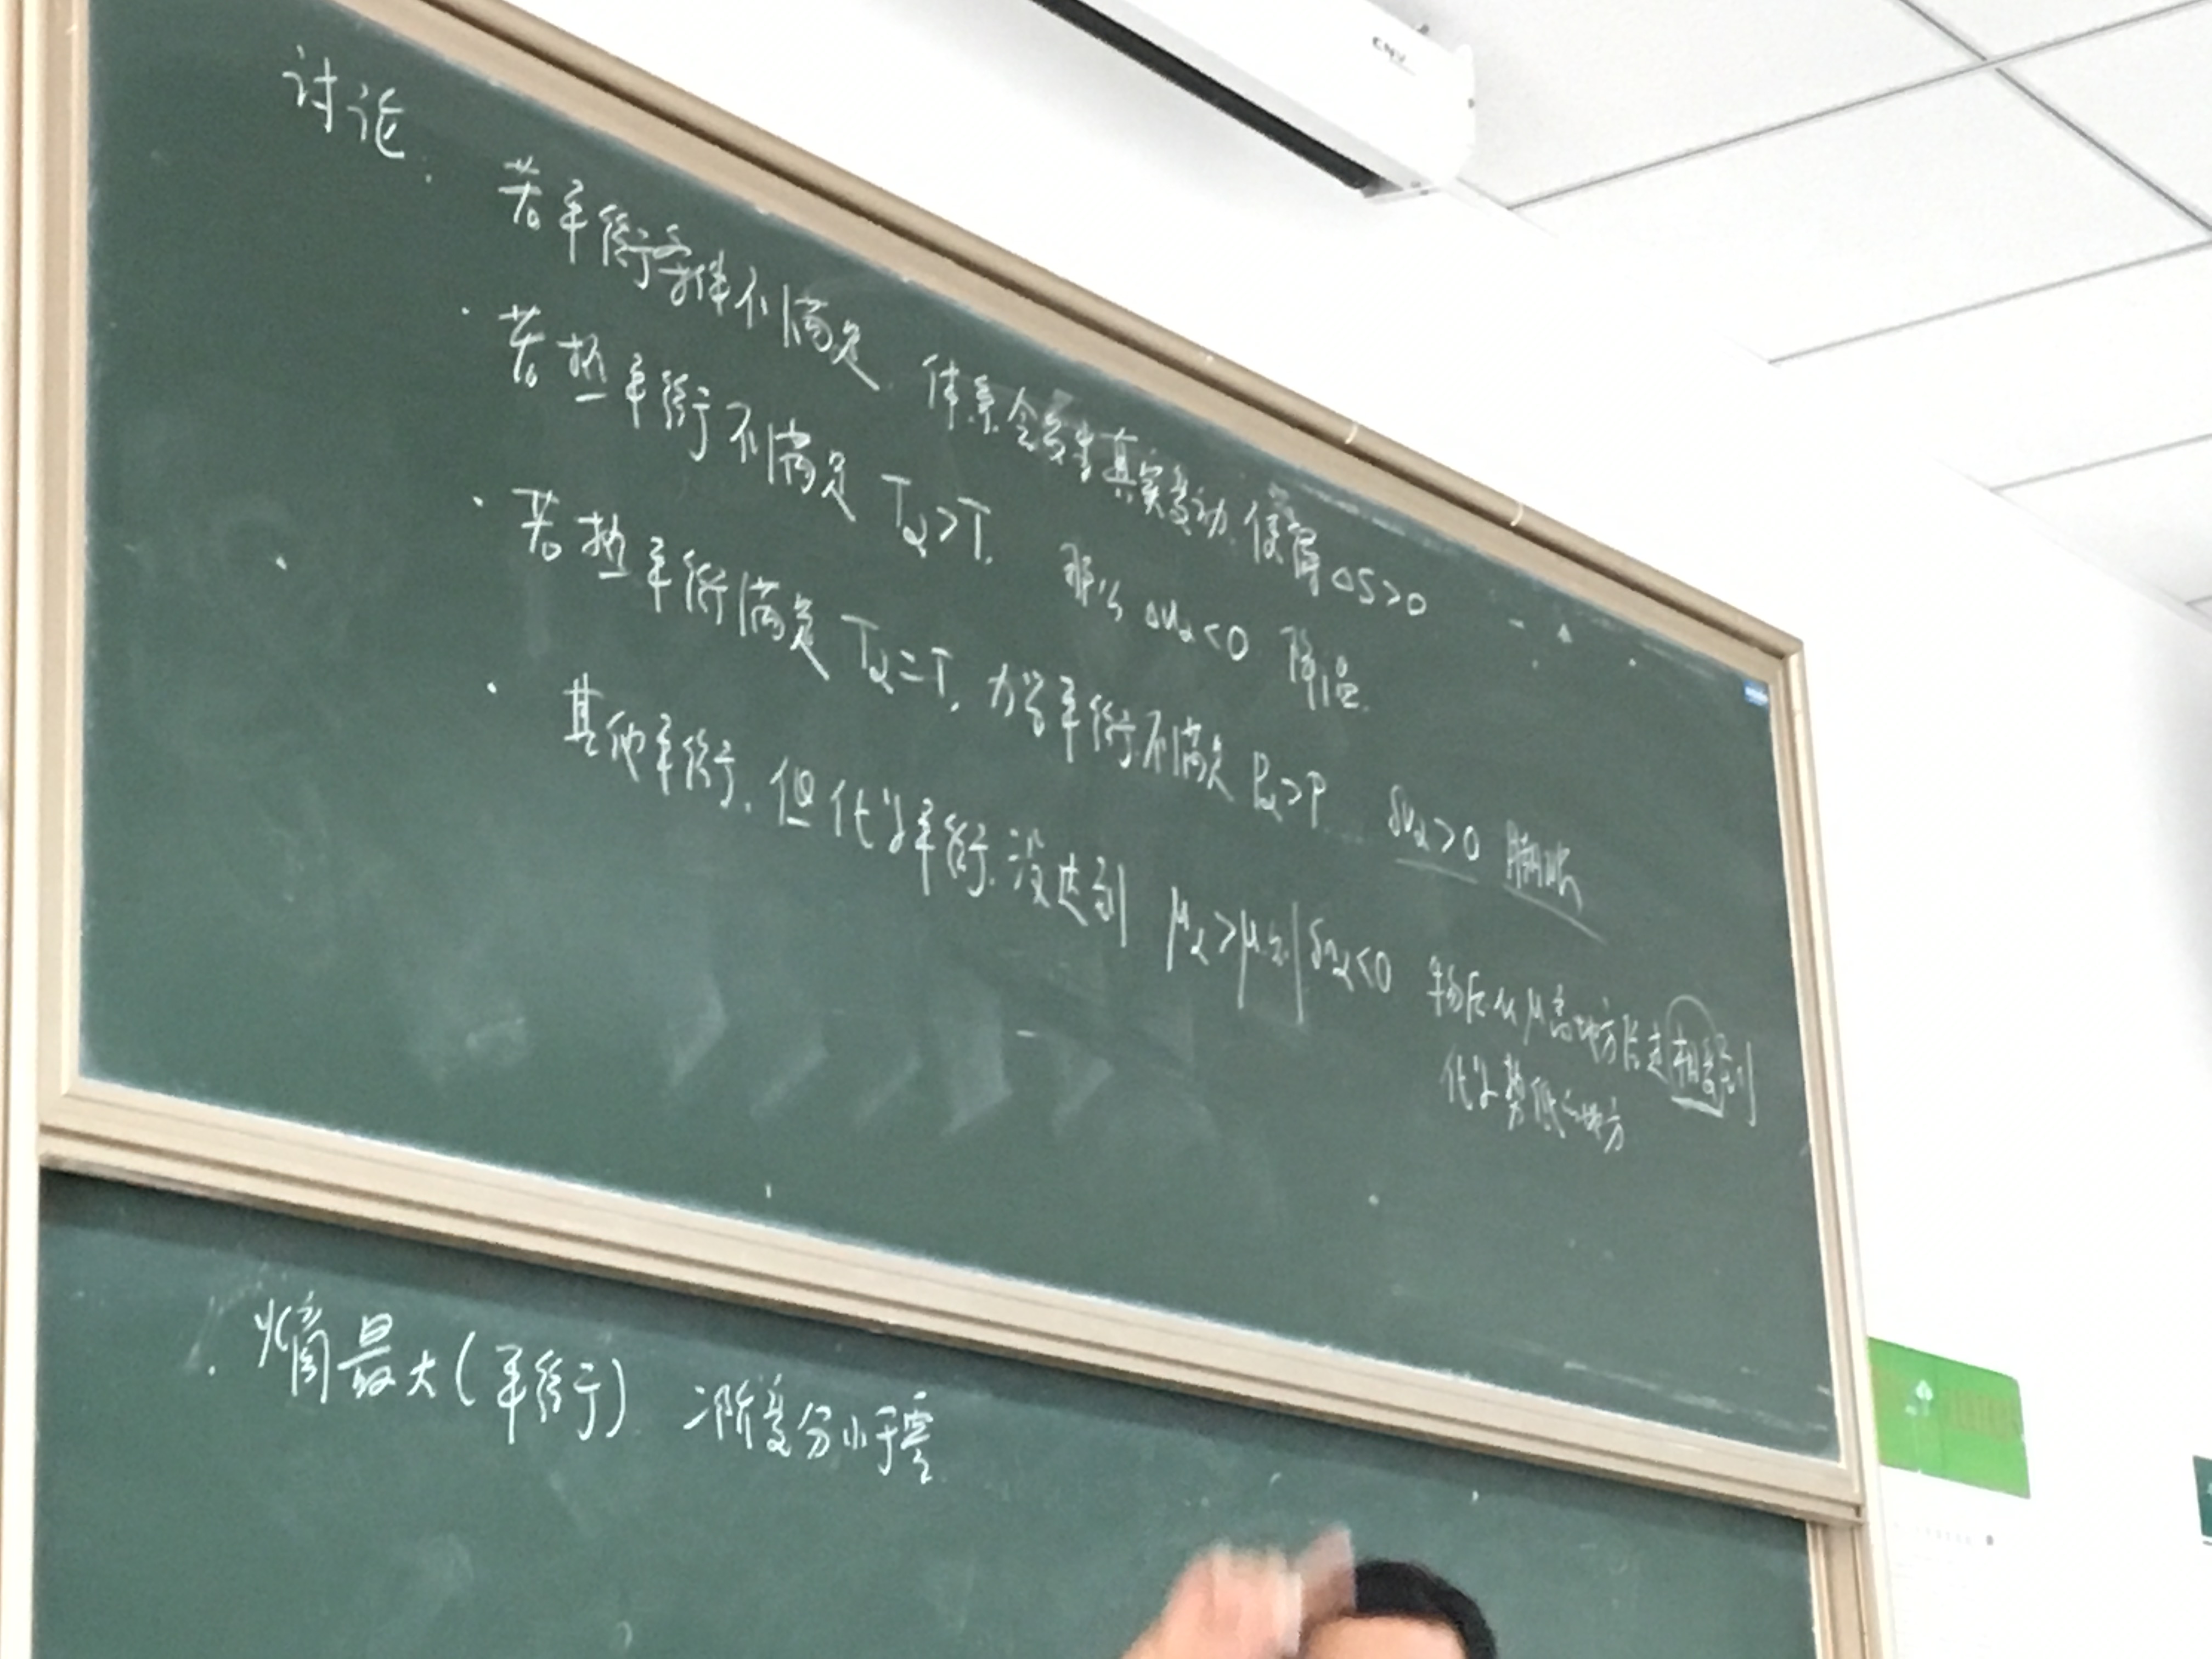 讨论.
若平衡条件不满足, 体系会发生真实变动, 使得 ΔS>0
· 若热平衡不满足 Tα>T, 那么 ΔUα<0 降温.
· 若热平衡满足 Tα=T, 力学平衡不满足 Pα>P δVα>0 膨胀
· 其他平衡, 但化学平衡没达到 μα>μ 则 δnα<0 物质从μ高地方 相变到
化学势低的地方
· 熵最大(平衡) 二阶变分小于零